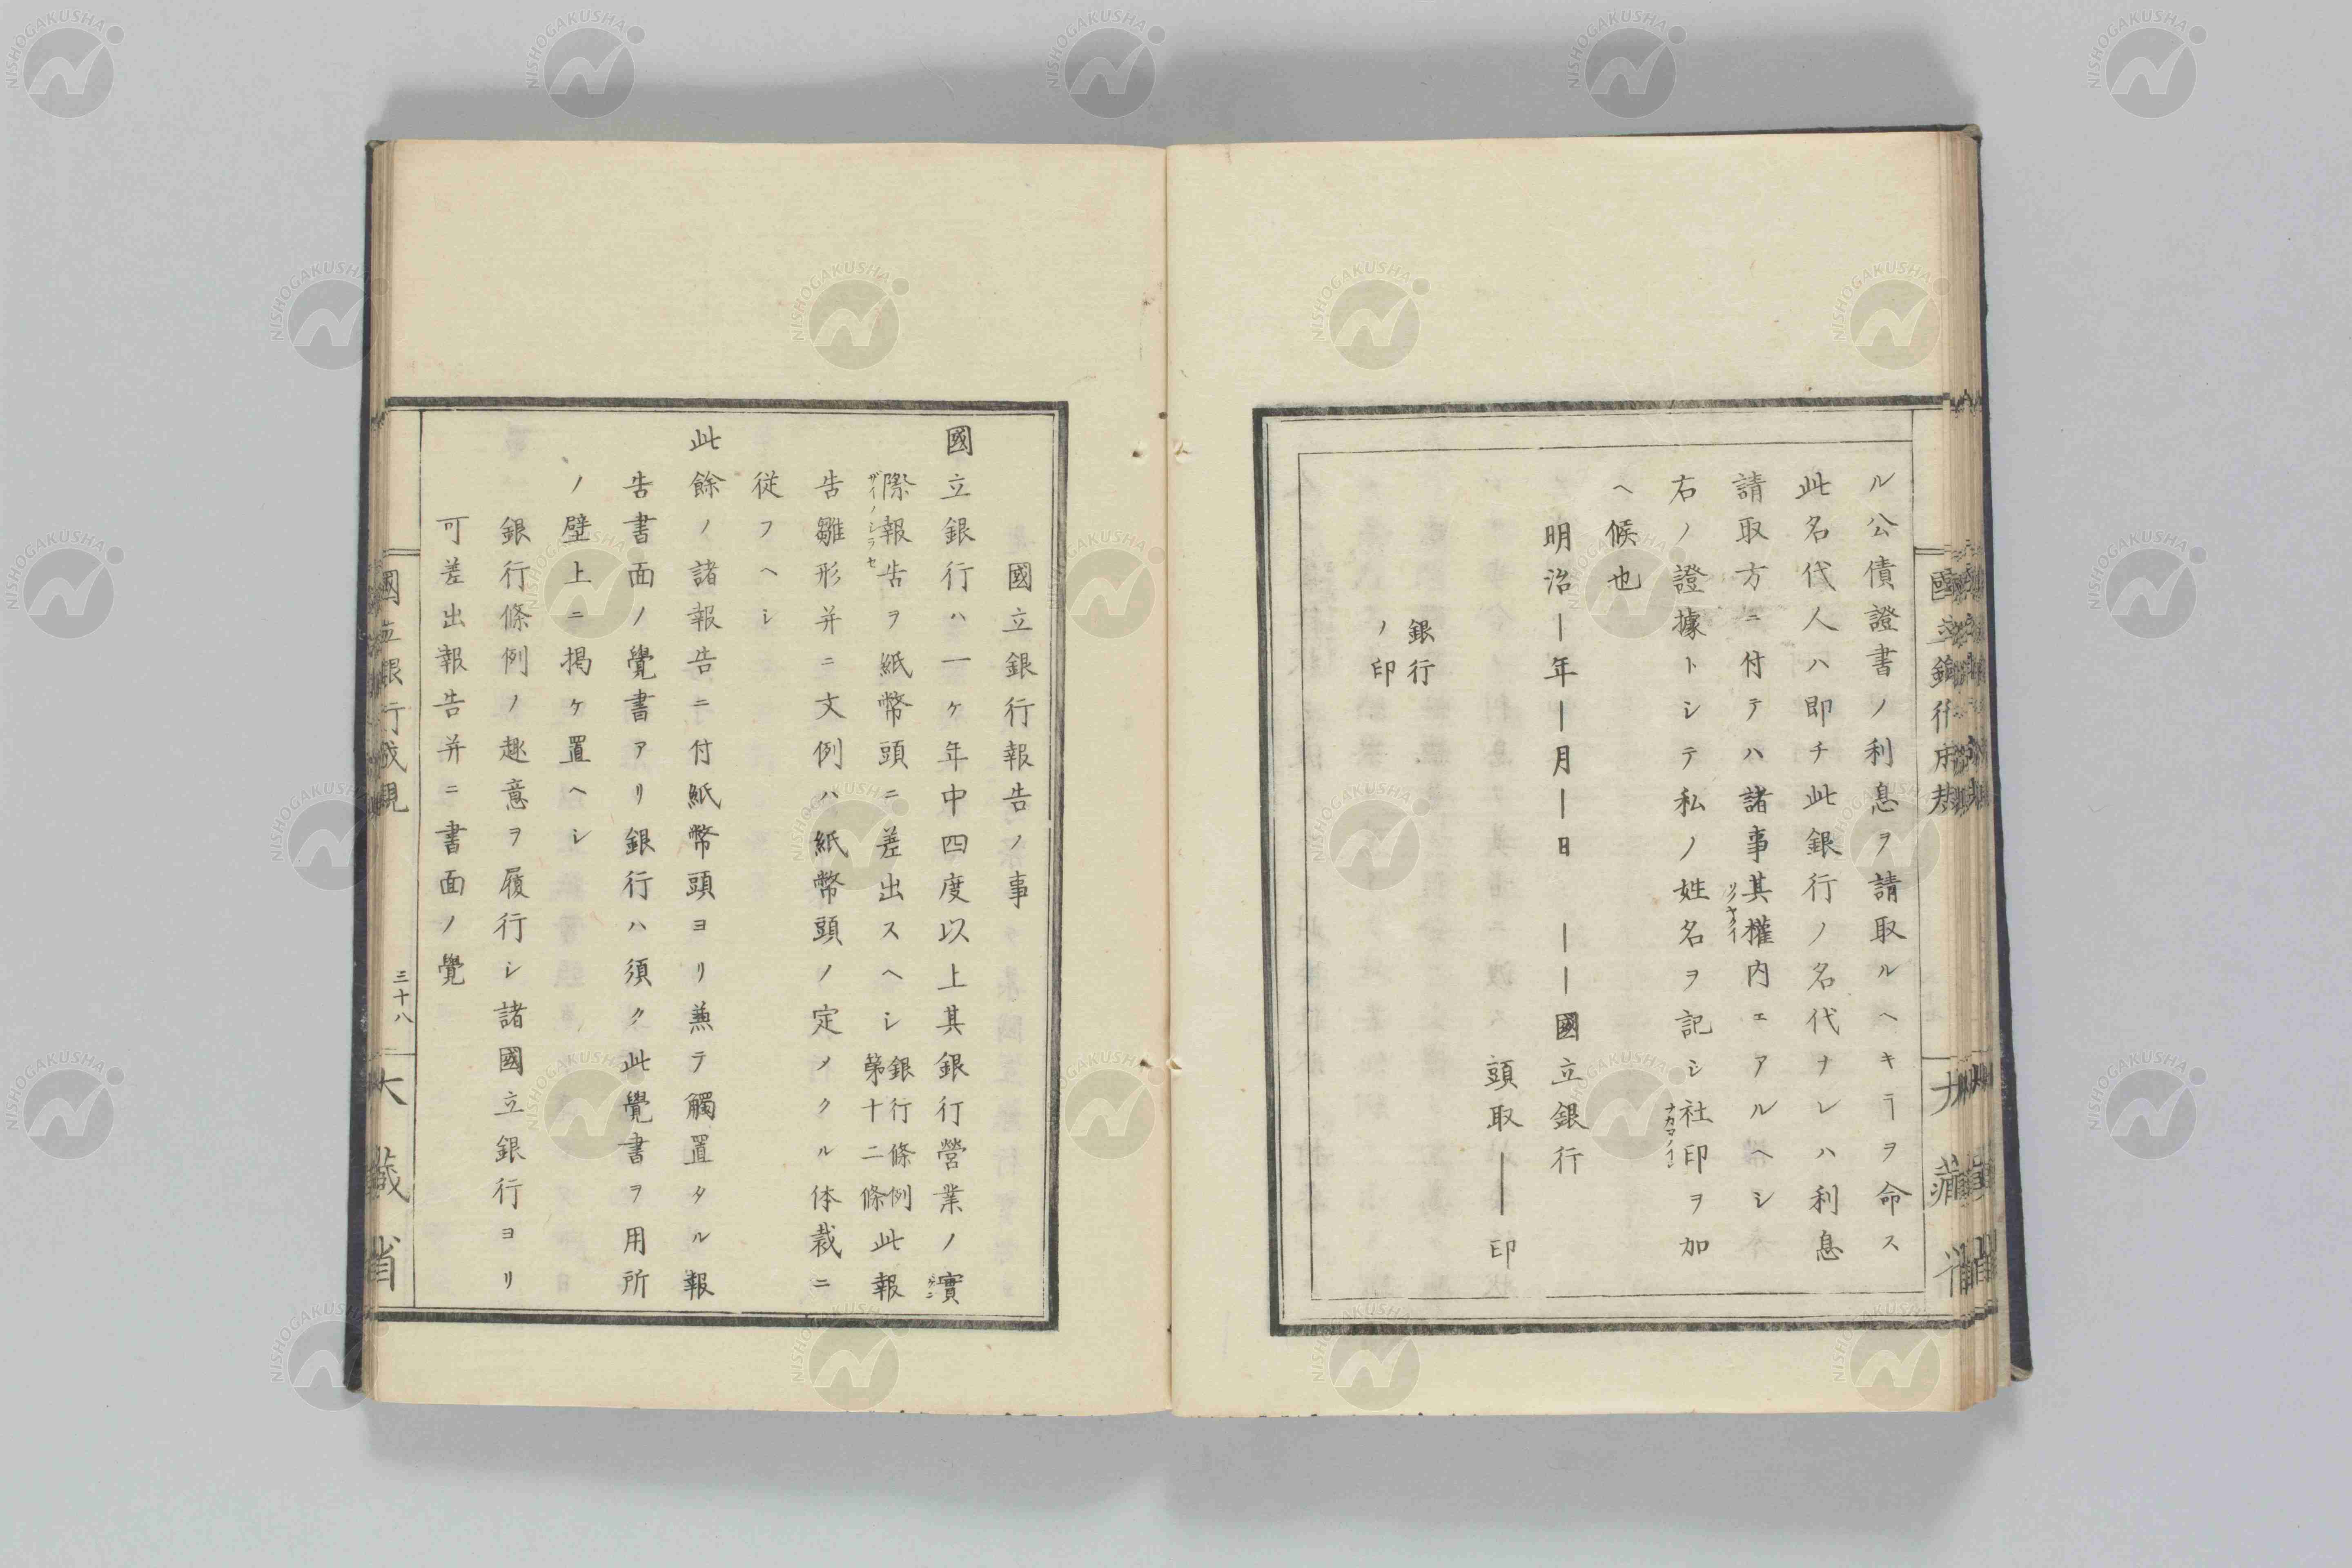 ル公債證書ノ利息ヲ請取ルヘキヿヲ命ス
此名代人ハ即チ此銀行ノ名代ナレハ利息
請取方ニ付テハ諸事其權内ニアルヘシ
右ノ證據トシテ私ノ姓名ヲ記シ社印ヲ加
ナカマノイン
ヘ候也
明治ー年ー月ー日 ーー國立銀行
頭取ー印
銀行
ノ印
國立銀行報告ノ事
國立銀行ハ一ケ年中四度以上其銀行營業ノ實
際報告ヲ紙幣頭ニ差出スヘシ銀行條例第十二條此報
告雛形并ニ文例ハ紙幣頭ノ定メタル体裁ニ
従フヘシ
此餘ノ諸報告ニ付紙幣頭ヨリ兼テ觸置タル報
告書面ノ覺書アリ銀行ハ須ク此覺書ヲ用所
ノ壁上ニ掲ケ置ヘシ
銀行條例ノ趣意ヲ履行シ諸國立銀行ヨリ
可差出報告并ニ書面ノ覺
三十八
大藏省
NISHOGAKUSHA